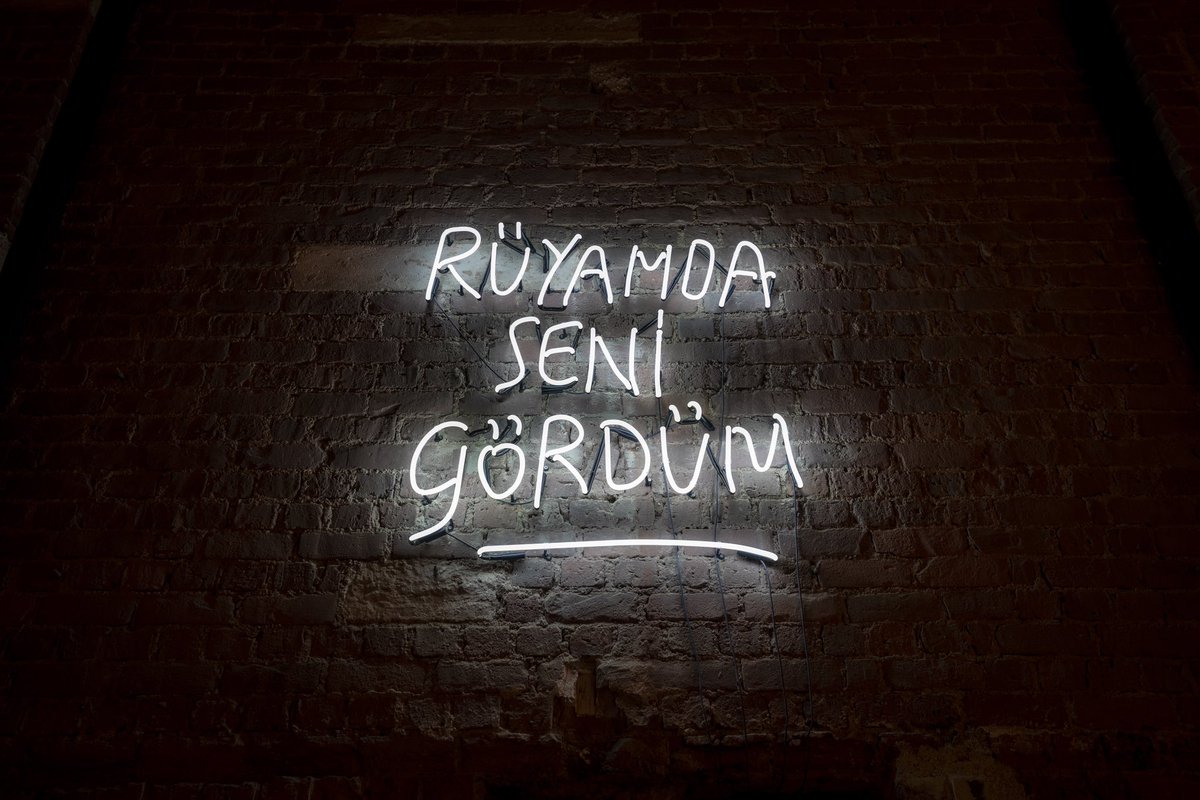 RÜYAMDA
SENİ
GÖRDÜM